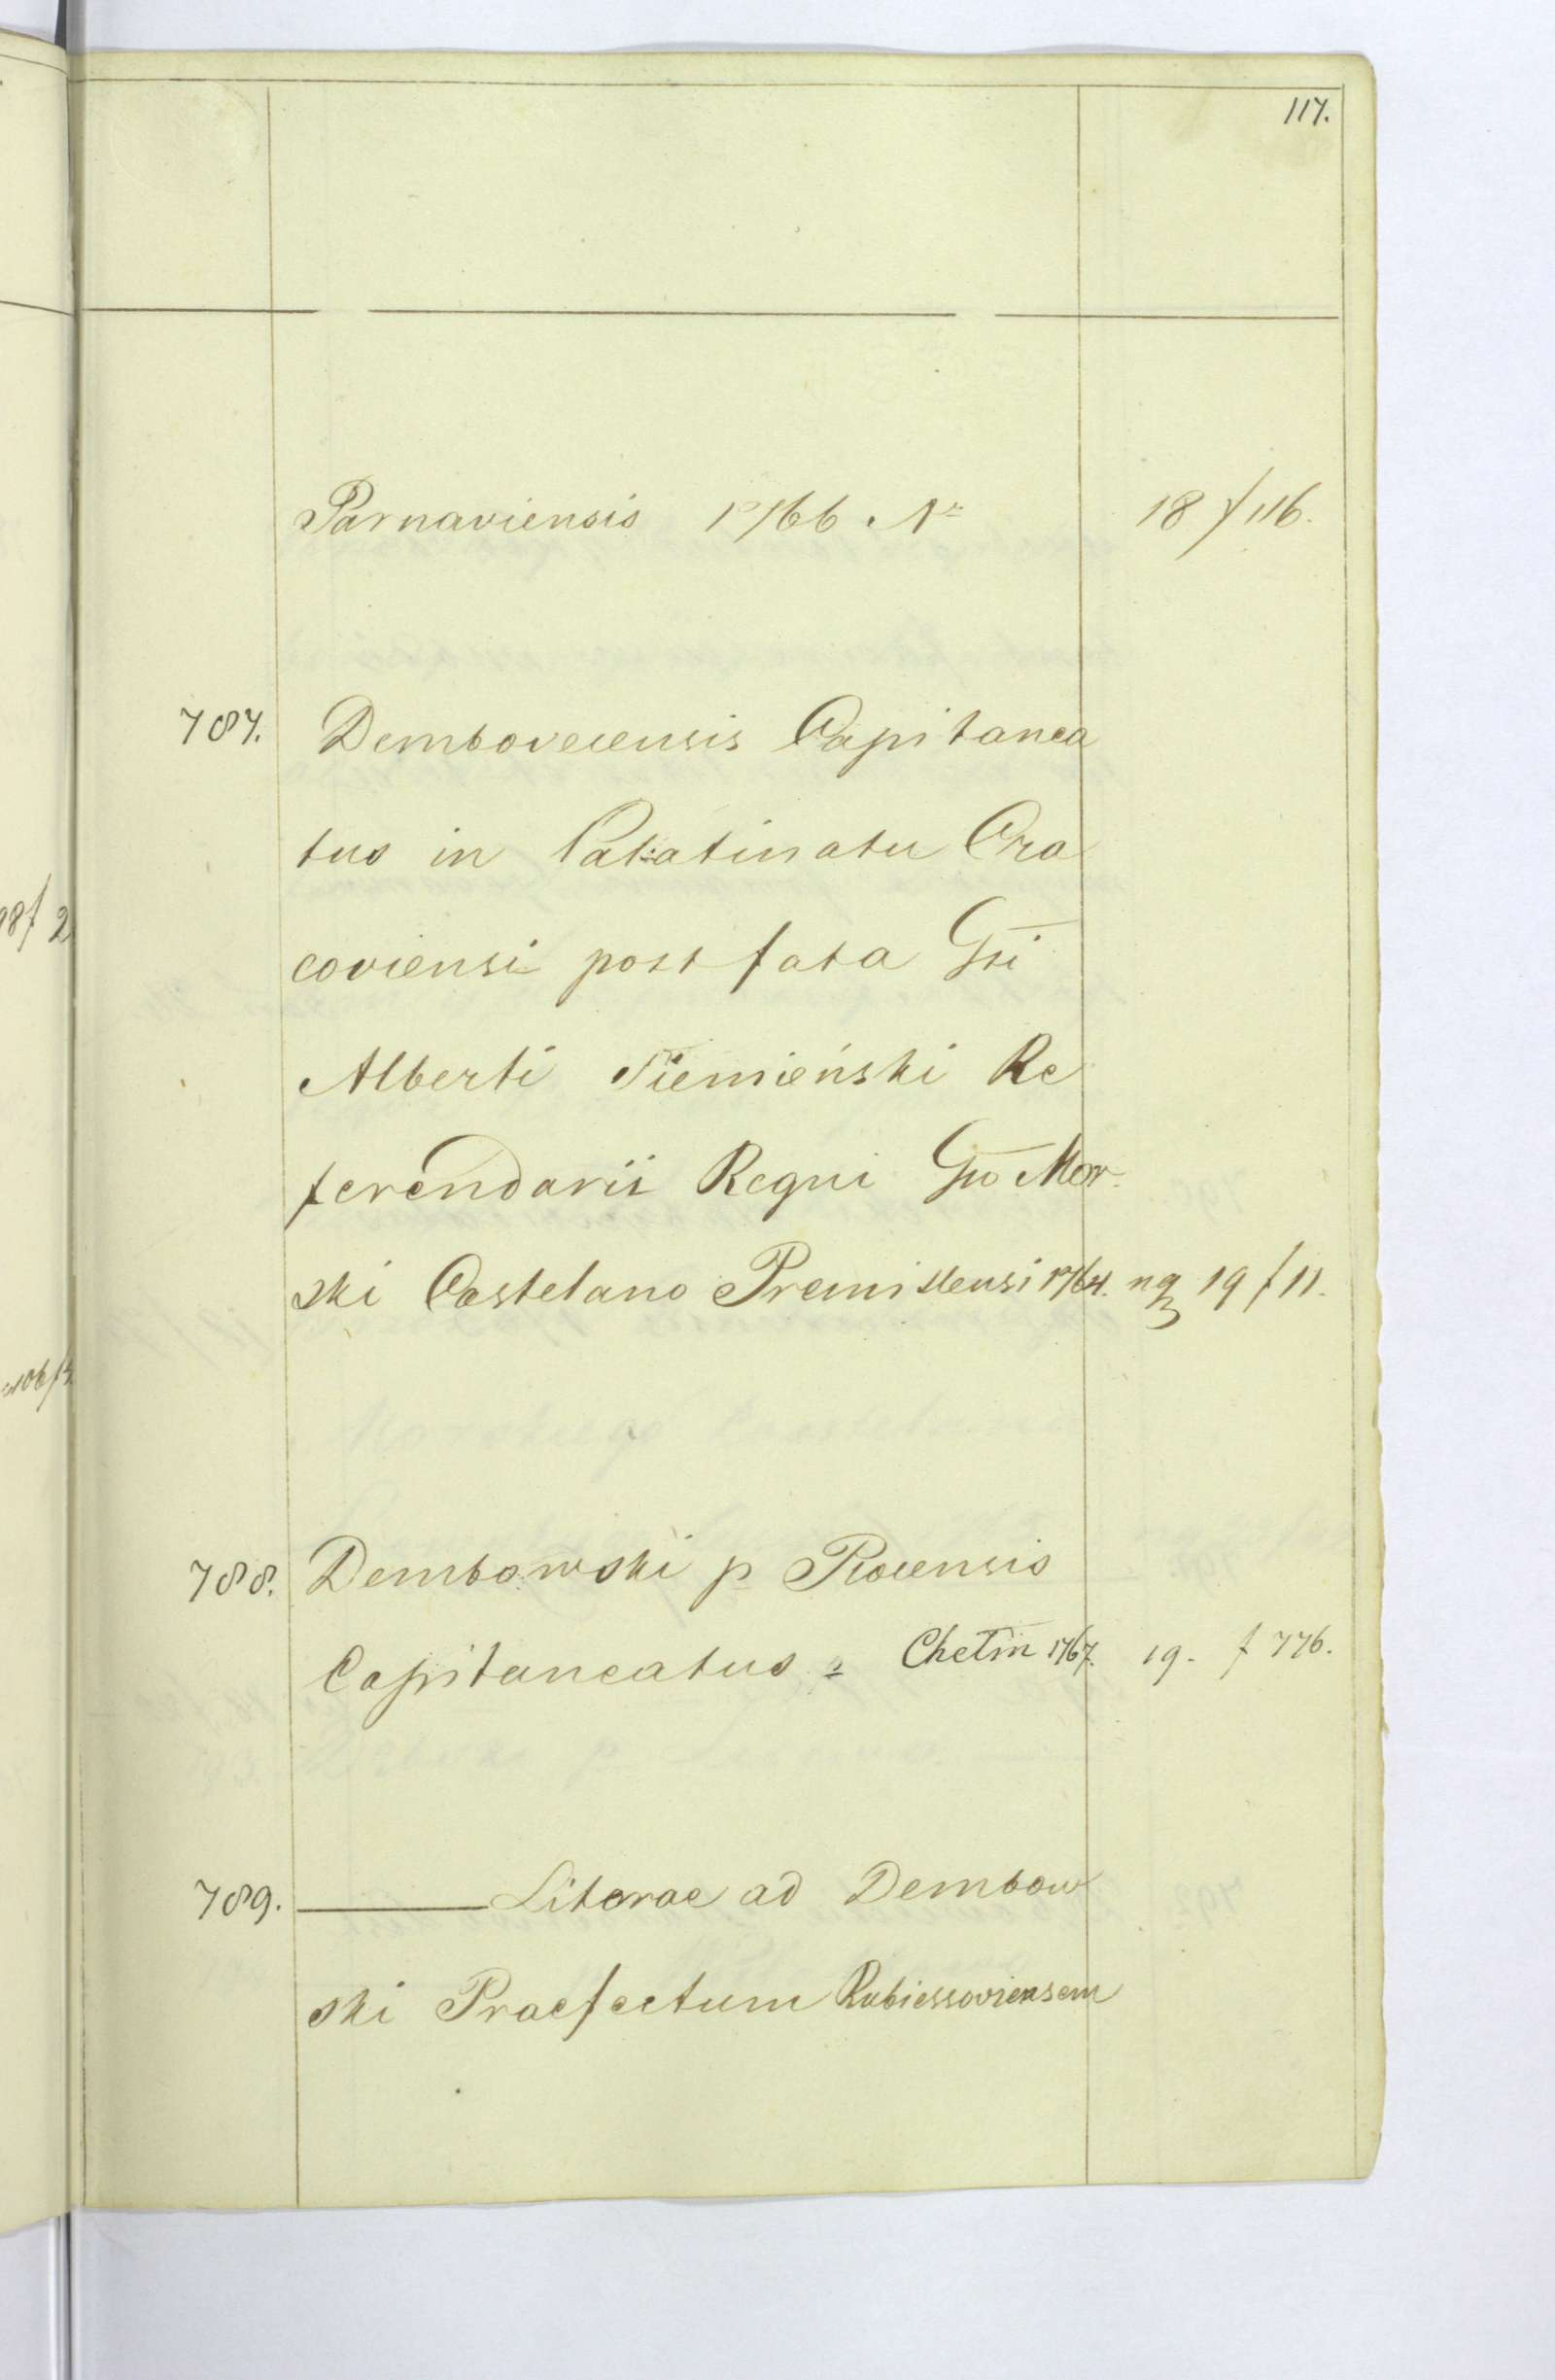 117.
Parnaviensis 1766 Nr 18 f 116.
787. Demboveiensis Capitanea
tus in Palatinatu Cra
coviensi post fata Gsi
Alberti Siemieński Re
ferendarii Regni Gso Mor-
ski Castelano Premisleensi 1764. 19 f 11.
788. Dembowski p
Capitaneatus = Chelm 1767. 19. f 776.
789. ——— Literae ad Dembow
ski Praefectum Rubiessoviensem